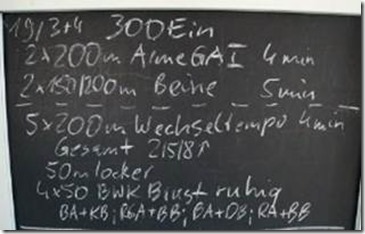 19/3+4 300 Ein
2x200m Arme GAI 4min
2x150/200m Beine 5min
5x200m Wechseltempo 4min
Gesamt 2/5/8↑
50m locker
4x50 BWK Brust ruhig
BA+KB; RGA+BB; BA+DB; RA+BB